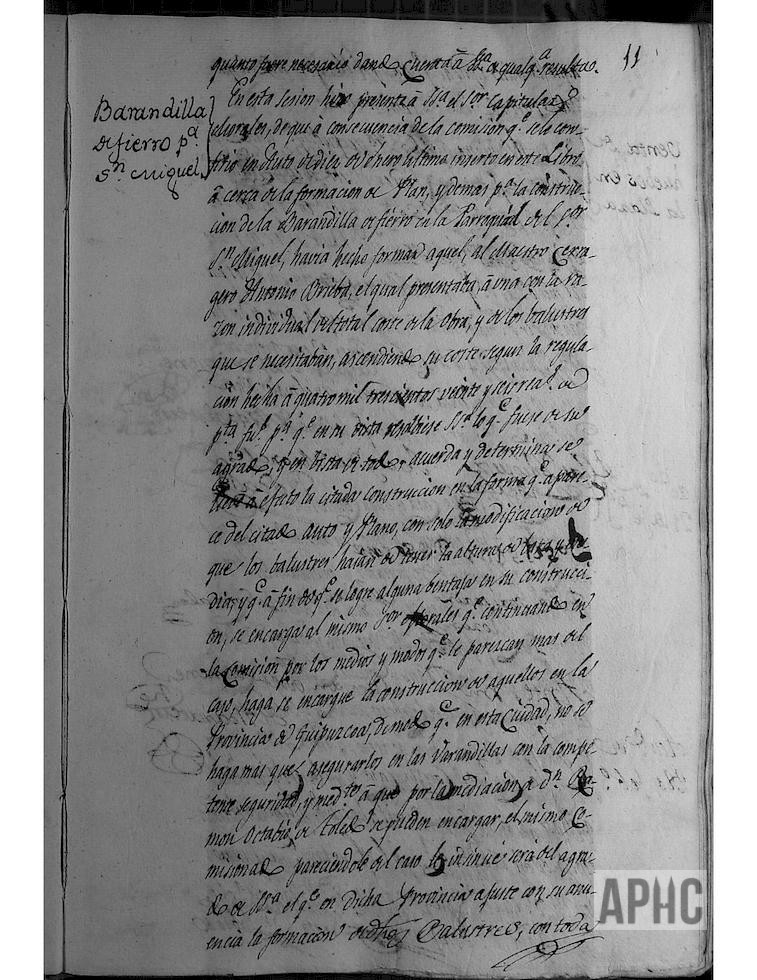 11
quanto fuere necesario dando Cuenta á SSa. de qualqa. resulta.
Barandilla
de fierro pa.
Sn. Miguel
En esta sesion hizo presente á SSa. el Sor. Capitular
Morales, de que á consecuencia de la comision qe. se le con-
firio en Auto de diez de Enero ultimo inserto en este Libro
á cerca de la formacion de Plan, y demas pa. la construc-
cion de la Barandilla de fierro en la Parroquial del Sor.
Sn. Miguel, havia hecho formar aquel, al Maestro Cerra-
gero Antonio Brieba, el qual presentaba, á una con la ra-
zon individual del total coste de la obra, y de los balustres
que se necesitaban, ascendiendo su coste segun la regula-
cion hecha á quatro mil trescientos veinte y seis reas. de
pta. pa. qe. en su vista resolbiese SSa. lo qe. fuese de su
agrado, y en vista de todo, acuerda y determina se
lleve á efecto la citada construccion en la forma qe. apare-
ce del citado auto y Plano, con solo la modificacion de
que los balustres haian de tener la altura de vara y
dia; y qe. á fin de qe. se logre alguna bentaja en su construcci-
on, se encarga al mismo Sor. Morales qe. continuando en
la Comision por los medios y modos qe. le parezcan mas del
caso, haga se encargue la construccion de aquellos en la
Provincia de Guipuzcoa, de modo qe. en esta Ciudad, no se
haga mas que asegurarlos en las Varandillas con la compe-
tente seguridad, y medte. á que por la mediacion de Dn. Ra-
mon Octabio de Toledo se pueden encargar, el mismo Co-
misionado pareciendole del caso le insinue será del agra-
do de SSa. el qe. en dicha Provincia ajuste con su anu-
encia la formacion de dhos Balustres, con toda
APHC